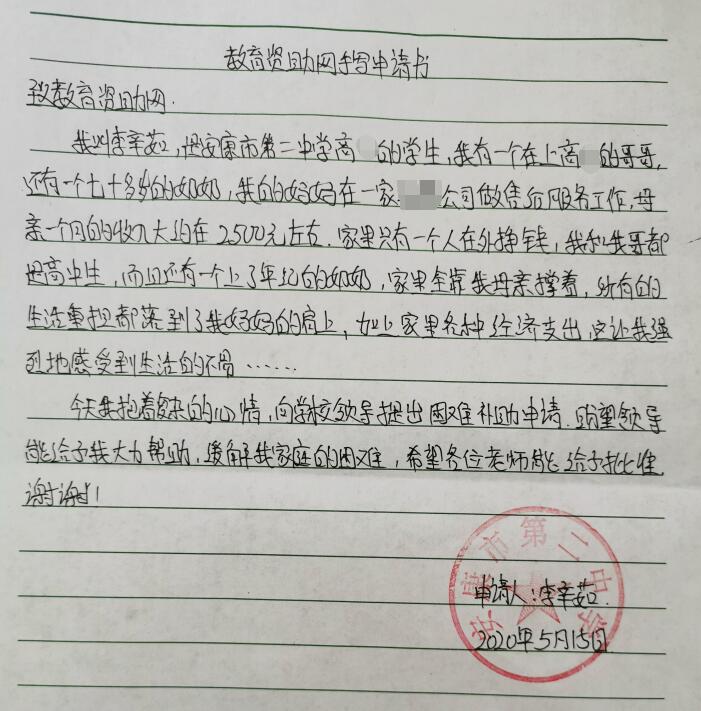 教育资助网手写申请书
致教育资助网.
我叫李辛茹,是安康市第二中学高 的学生,我有一个在上高 的哥哥,
还有一个七十多岁的奶奶,我的妈妈在一家 公司做售后服务工作,母
亲一个月的收入大约在2500元左右.家里只有一个人在外挣钱,我和我哥都
是高中生,而且还有一个上了年纪的奶奶,家里全靠我母亲撑着,所有的
生活重担都落到了我妈妈的肩上,加上家里各种经济支出,这让我强
烈地感受到生活的不易……
今天我抱着复杂的心情,向学校领导提出困难补助申请.盼望领导
能给予我大力帮助,缓解我家庭的困难,希望各位老师能给予批准
谢谢!
安康市第二中学
申请人:李辛茹.
2020年5月15日